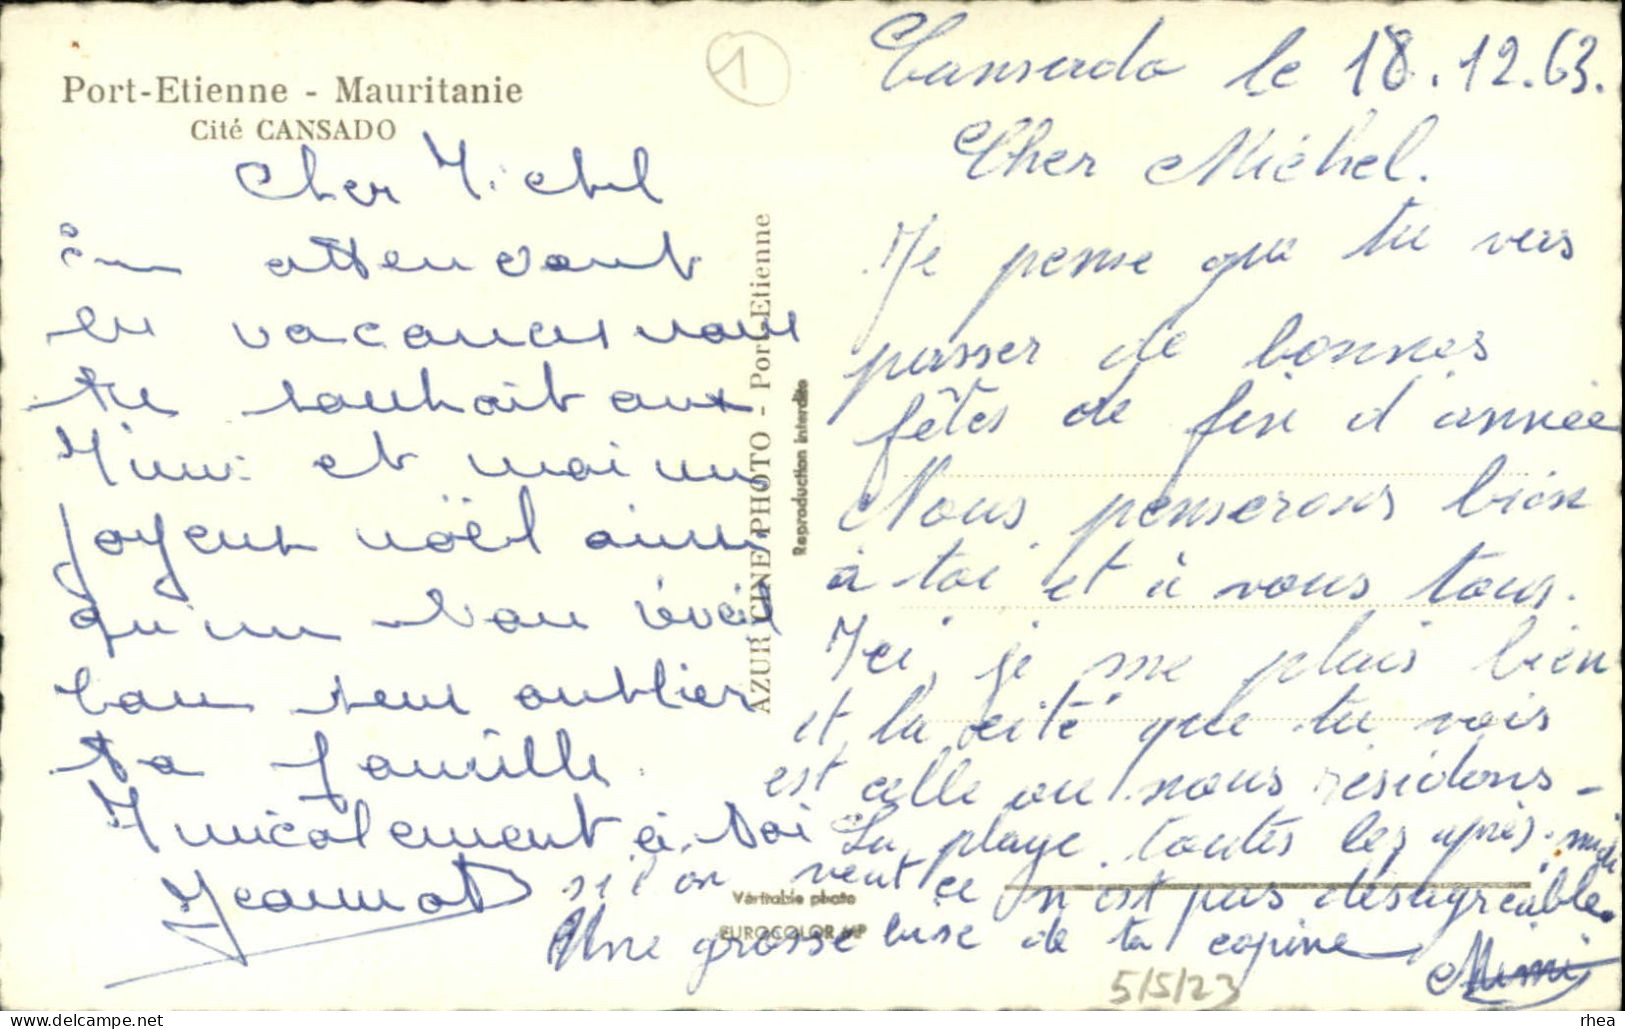 Port-Etienne - Mauritanie
Cité CANSADO
1
Cher Michel
en attendant
les vacances nous
te souhait aux
Mimi et moi un
joyeux noël ainsi
qu'un bon réveil
sans oublier
ta famille
Amicalement à toi
Jeannot
AZUR CINE PHOTO - Port-Etienne
Reproduction interdite
Véritable photo
EUROCOLOR MP
Cansado le 18.12.63.
Cher Michel.
Je pense que tu vas
passer de bonnes
fêtes de fin d'année
Nous penserons bien
à toi et à vous tous.
Ici, je me plais bien
et la cité que tu vois
est celle ou nous résidons -
La plage toutes les après-midi
si l'on veut ce n'est pas désagréable.
Une grosse bise de ta copine
Mimi
5/5/23
rhea